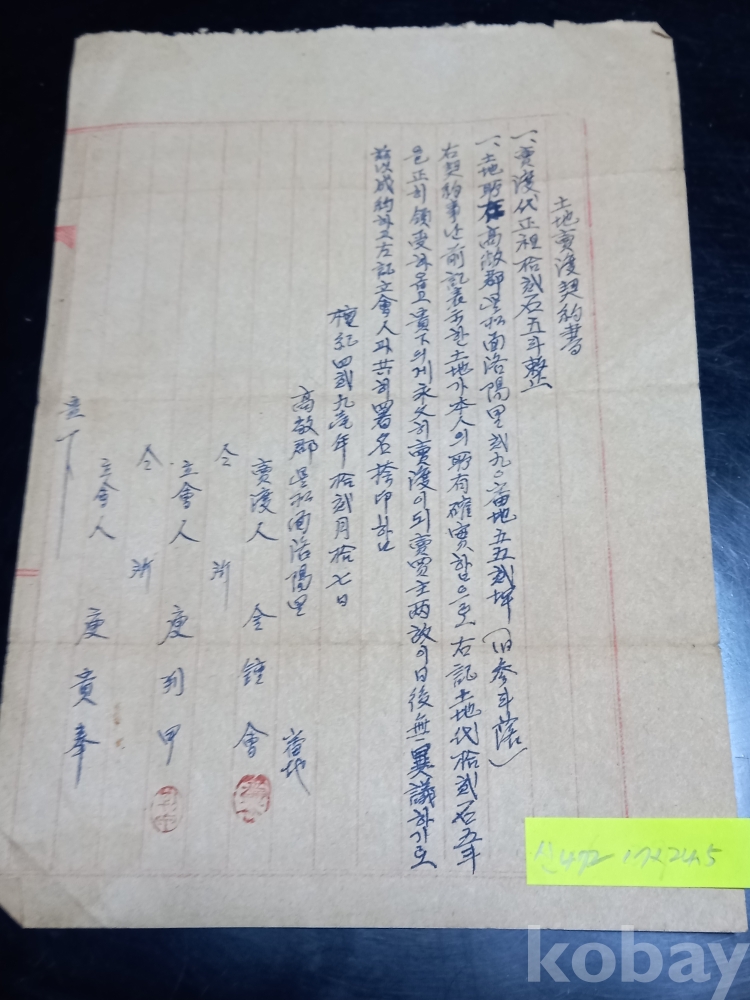 土地賣渡契約書
一、賣渡代正租拾貳石五斗整
一、土地所在高敞郡星松面洛陽里貳九〇番地五五貳坪(旧參斗落)
右契約事난前記表示한土地가本人의所有確實함으로右記土地代拾貳石五斗
을正히領受하고貴下의게永久히賣渡이되賣買主兩放이日後無異議하기로
玆以成約하고左記立會人과共히署名捺印함
檀紀四貳九壹年拾貳月拾七日
高敞郡星松面洛陽里 當地
賣渡人 金鍾會
仝 所
立會人 庾列甲
仝 所
立會人 庾黃奉
kobay